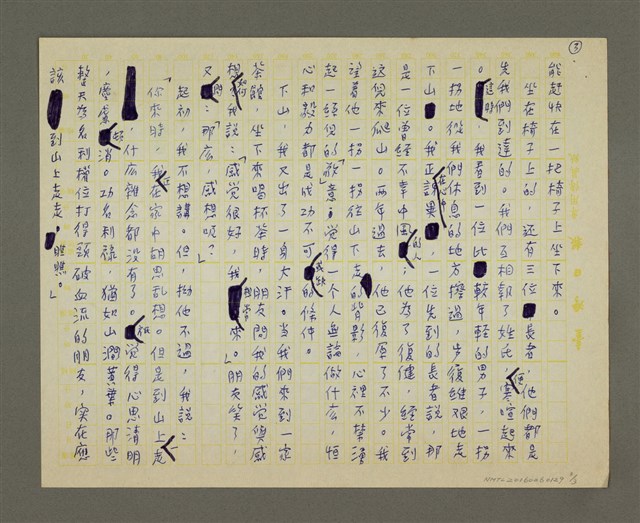 ③
能趕快在一把椅子上坐下來。
坐在椅子上的，還有三位長者，他們都是
先我們到達的。我們互相報了姓氏，寒喧起來
。這時，我看到一位比較年輕的男子，一拐
一拐地從我們休息的地方擦過，步履維艱地走
下山。我正訝異，一位先到的長者說，那
是一位曾經不幸中風的人；他為了復健，經常到
這兒來爬山。兩年過去，他已復原了不少。我
望著他一拐一拐往山下走的背影，心裡不禁湧
起一縷傾的敬意；覺得一個人無論做什么，恒
心和毅力都是成功不可或缺的條件。
下山，我又出了一身大汗。當我們來到一家
茶館，坐下來喝杯茶時，朋友問我的感觉與感
想如何，我說：「感觉很好，我想常來。」朋友笑了，
又問：「那么，感想呢？」
起初，我不想講。但，拗他不過，我說：
「你來時，我在家中胡思乱想。但是到山上走走
，什么雜念都沒有了。但覺得心思清明
，塵慮起消。功名利祿，猶如山澗黃葉。那些
整天為名利權位打得頭破血流的朋友，實在應
該到山上走走，瞧瞧。」
NMTL20160060129 3/3